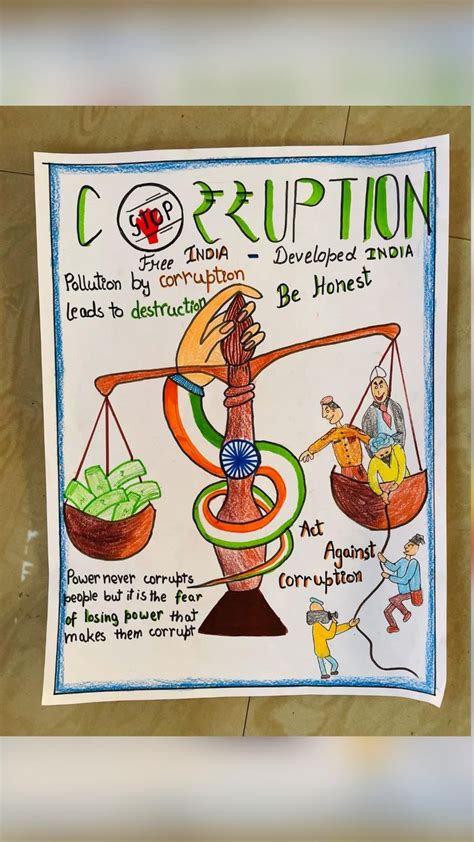 CO₹₹UPTION
STOP
Free INDIA - Developed INDIA
Pollution by corruption
leads to destruction
Be Honest
Act
Against
Corruption
Power never corrupts
people but it is the fear
of losing power that
makes them corrupt